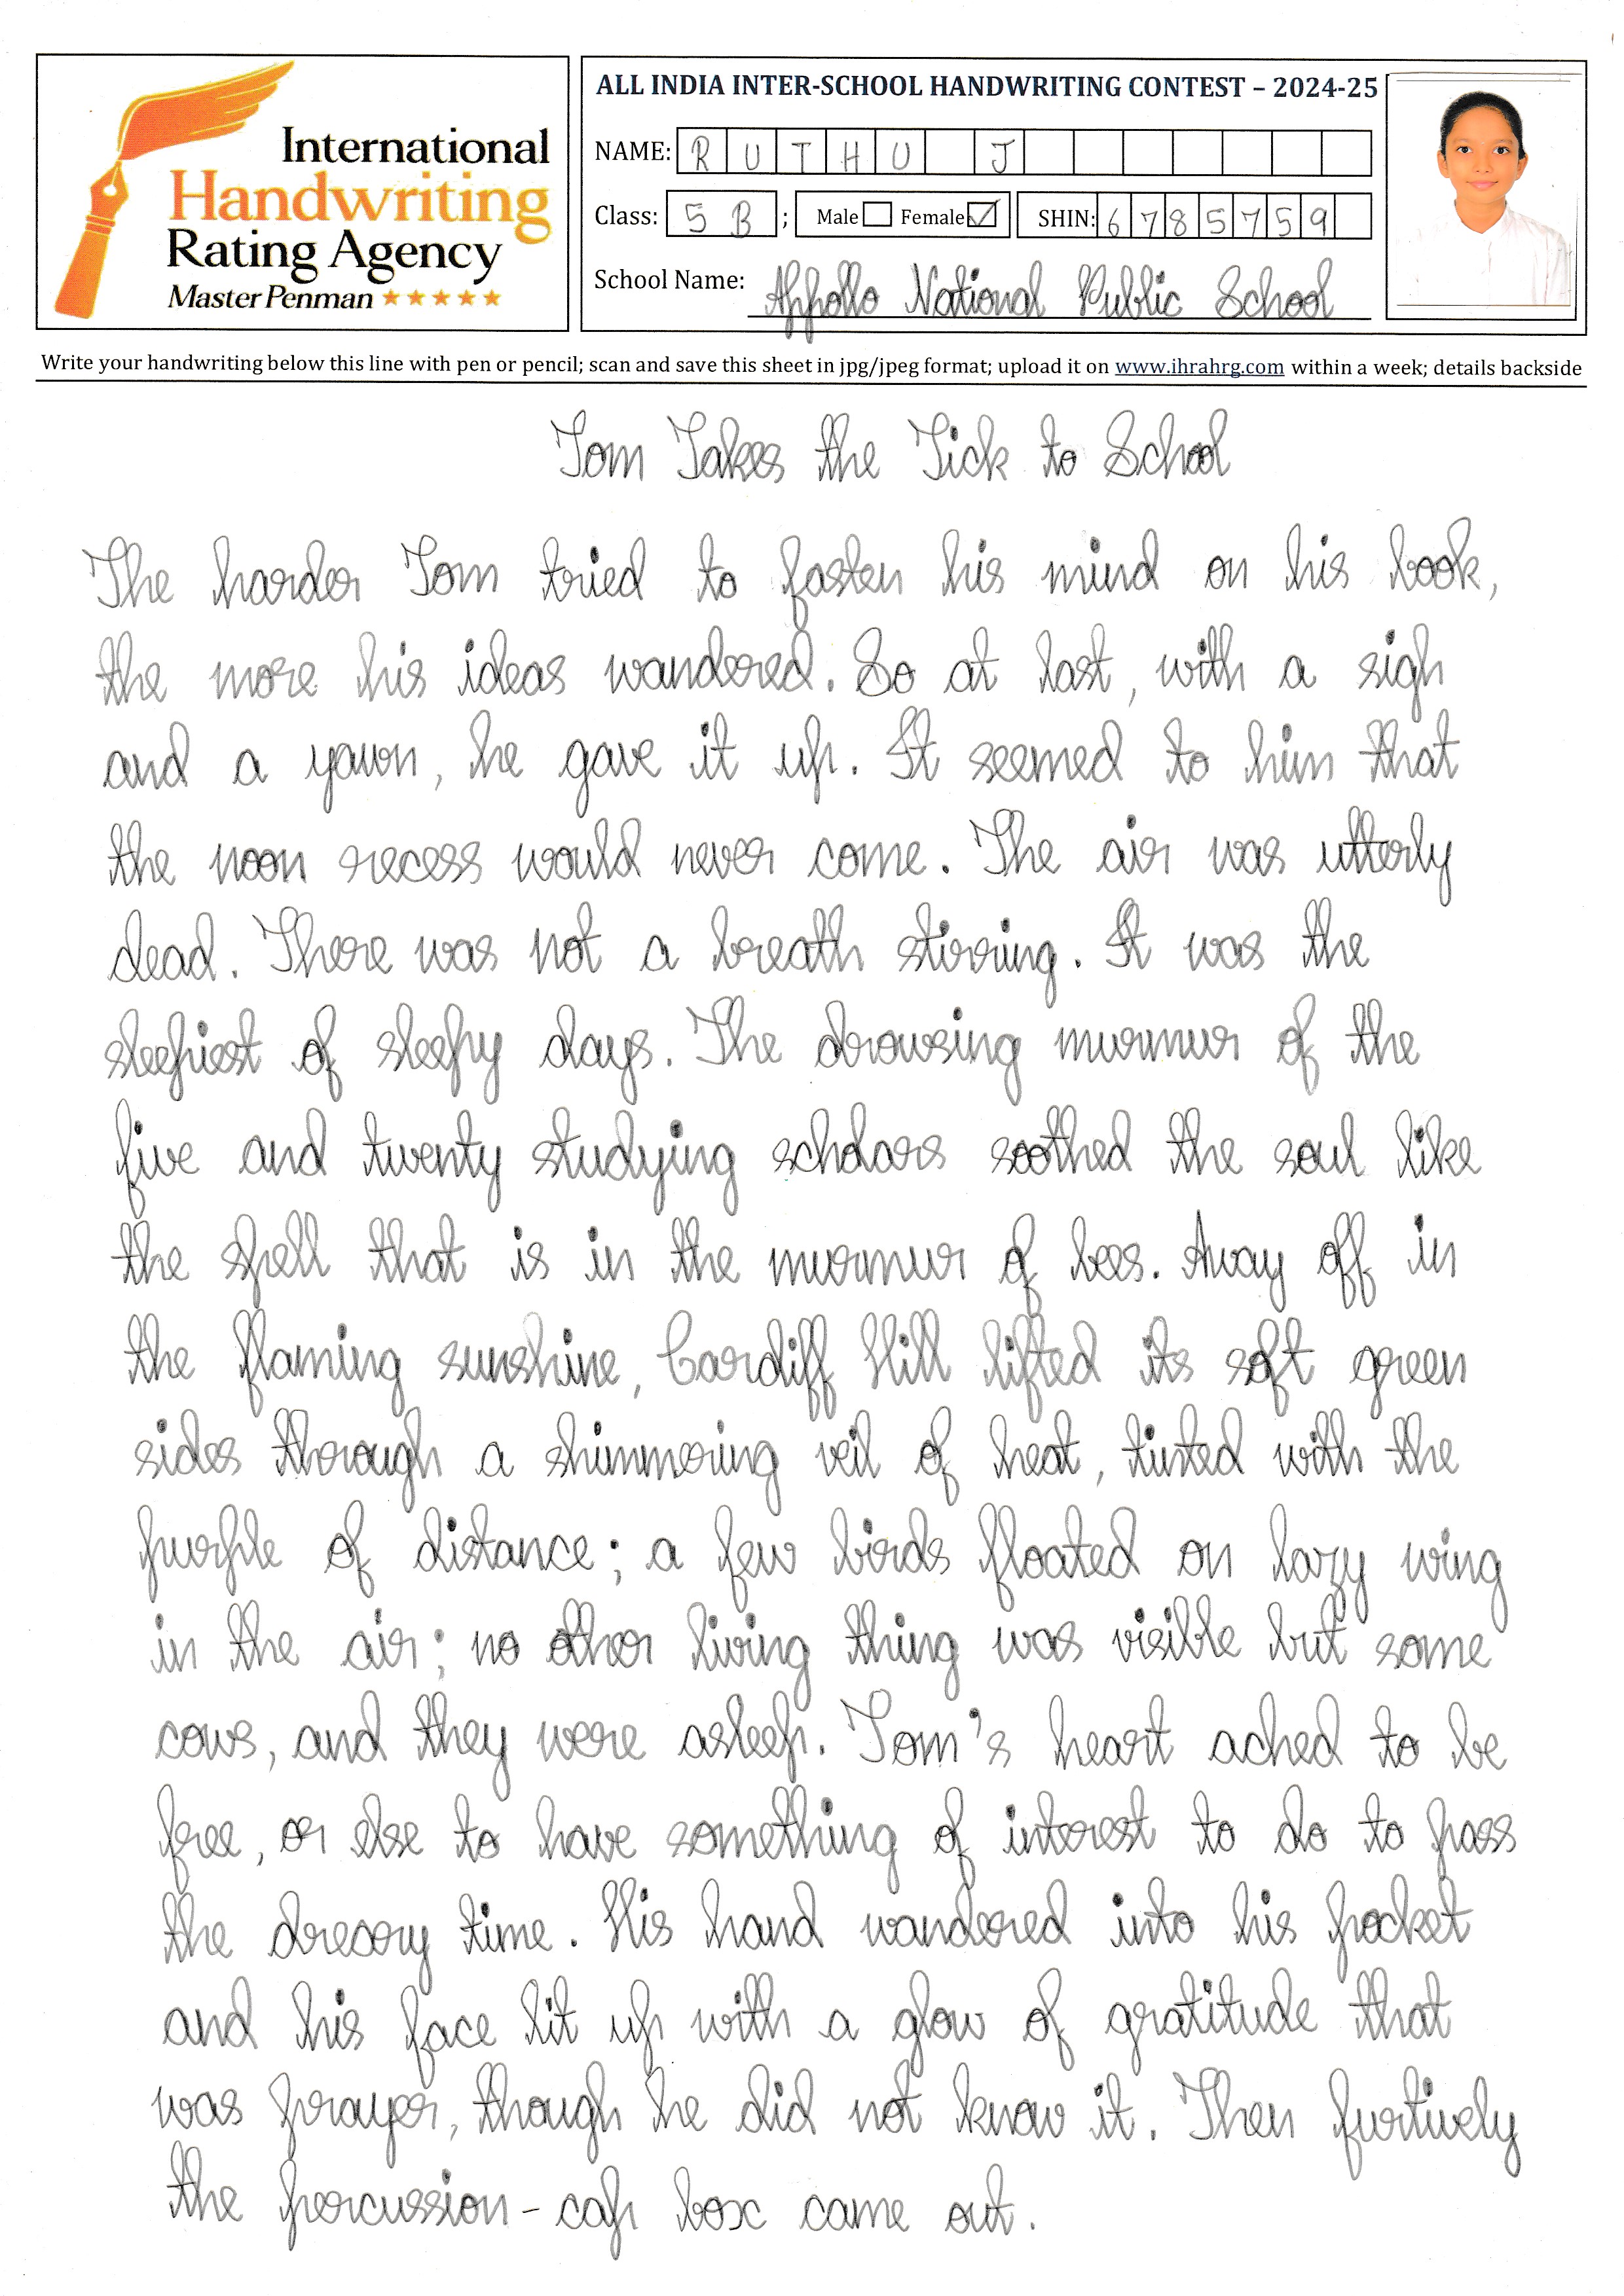 International
Handwriting
Rating Agency
Master Penman ★★★★★
ALL INDIA INTER-SCHOOL HANDWRITING CONTEST – 2024-25
NAME: RUTHU J
Class: 5 B ; Male Female ✓ SHIN: 6785759
School Name: Appollo National Public School
Write your handwriting below this line with pen or pencil; scan and save this sheet in jpg/jpeg format; upload it on www.ihrahrg.com within a week; details backside
Tom Takes the Tick to School
The harder Tom tried to fasten his mind on his book,
the more his ideas wandered. So at last, with a sigh
and a yawn, he gave it up. It seemed to him that
the noon recess would never come. The air was utterly
dead. There was not a breath stirring. It was the
sleepiest of sleepy days. The drowsing murmur of the
five and twenty studying scholars soothed the soul like
the spell that is in the murmur of bees. Away off in
the flaming sunshine, Cardiff Hill lifted its soft green
sides through a shimmering veil of heat, tinted with the
purple of distance; a few birds floated on lazy wing
in the air; no other living thing was visible but some
cows, and they were asleep. Tom's heart ached to be
free, or else to have something of interest to do to pass
the dreary time. His hand wandered into his pocket
and his face lit up with a glow of gratitude that
was prayer, though he did not know it. Then furtively
the percussion-cap box came out.